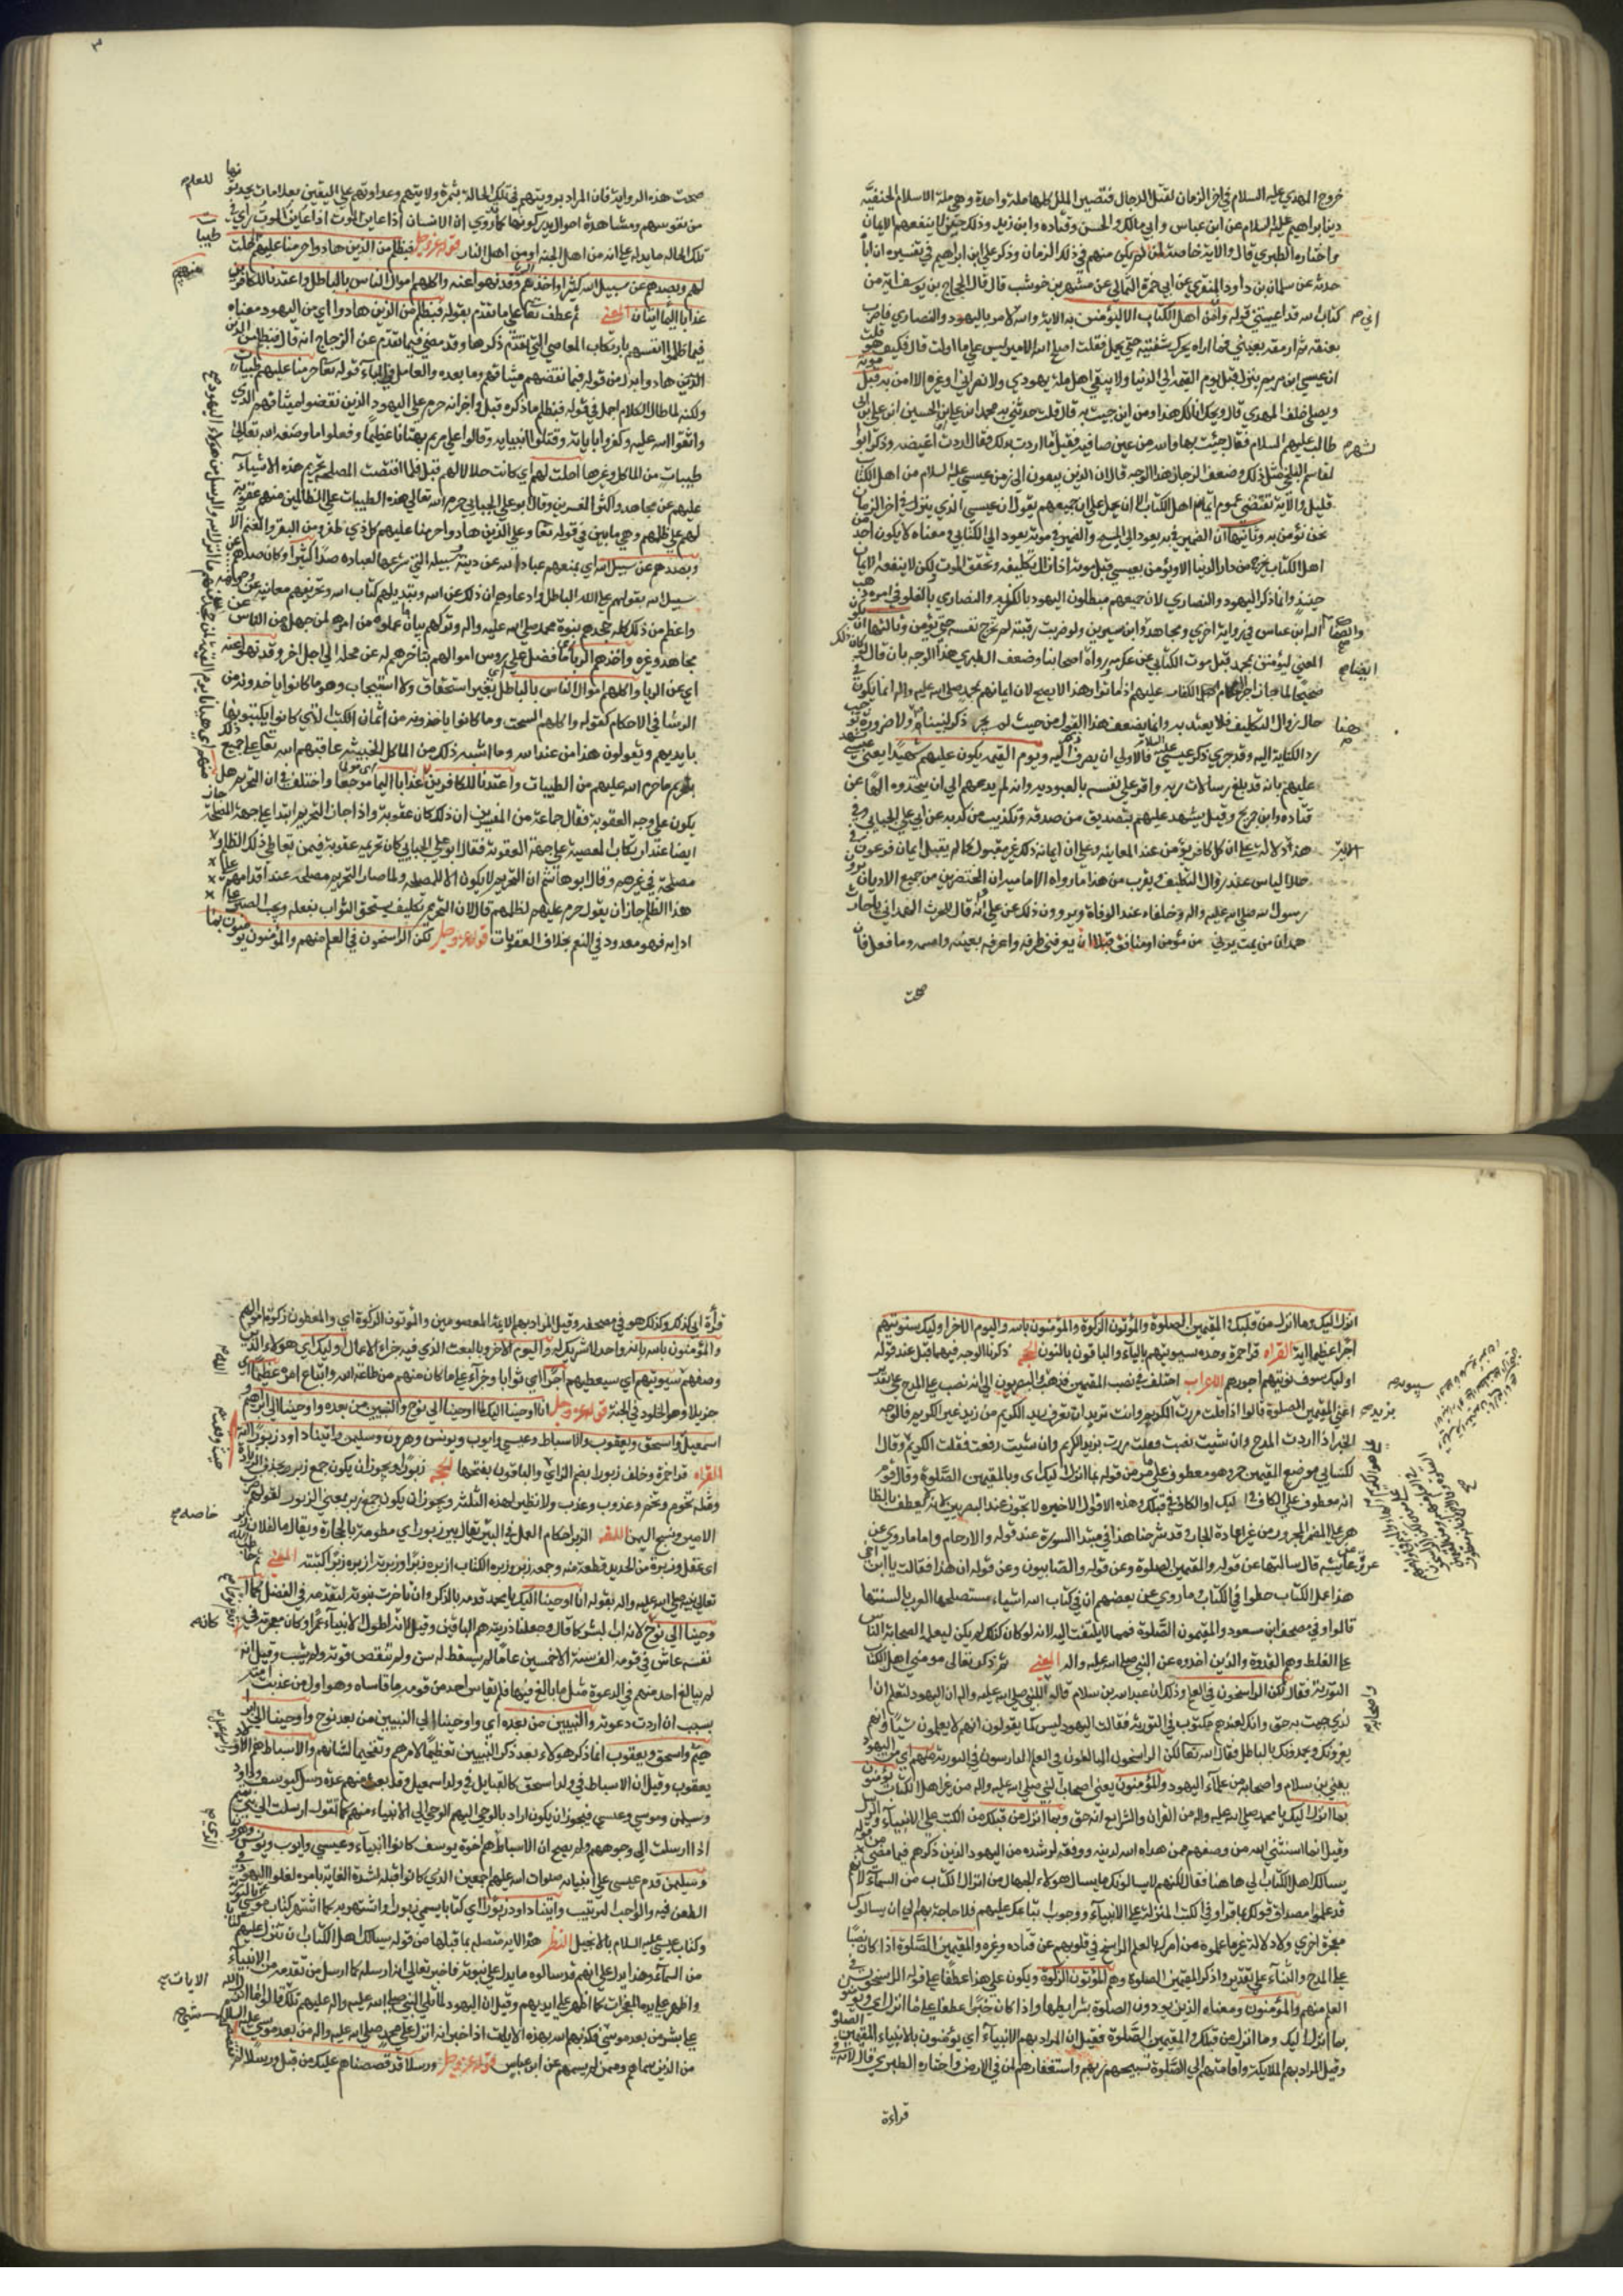 خروج المهدي عليه السلام في اخر الزمان لقتل الدجال فتصير الملل كلها ملة واحدة وهي ملة الاسلام الحنيفية
دين ابراهيم عليه السلام عن ابن عباس وابي مالك والحسن وقتاده وابن زيد وذلك حين لا ينفعهم الايمان
واختاره الطبري قال والاية خاصة لمن يكون منهم في ذلك الزمان وذكر علي ابن ابراهيم في تفسيره ان اباه
حدثه عن سليمان بن داود المنقري عن ابي حمزة الثمالي عن شهر بن حوشب قال قال الحجاج بن يوسف اية من
كتاب الله قد اعيتني قوله وان من اهل الكتاب الا ليؤمنن به الاية والله لامر باليهودي والنصراني فاضرب
بعنقه ثم ارمقه بعيني فما اراه يحرك شفتيه حتى يحمل فقلت اصلح الله الامير ليس على ما اولت قال فكيف هو قلت
ان عيسى ابن مريم ينزل قبل يوم القيمة الى الدنيا ولا يبقى اهل ملة يهودي ولا نصراني او غيره الا امن به قبل موته
ويصلي خلف المهدي قال ويحك انى لك هذا ومن اين جئت به قال قلت حدثني به محمد ابن علي بن الحسين ابن علي بن ابي
طالب عليهم السلام فقال جئت بها والله من عين صافية فقيل لشهر ما اردت بذلك فقال اردت ان اغيضه وذكر ابو
لقاسم البلخي مثل ذلك وضعف الزجاج هذا الوجه قال ان الذين يبقون الى زمن عيسى عليه السلام من اهل الكتاب
قليل والاية تقتضي عموم ايمان اهل الكتاب الا ان يحمل على ان جميعهم يقول ان عيسى الذي ينزل في اخر الزمان
نحن نؤمن به وثانيها ان الضمير في به يعود الى المسيح والضمير في موته يعود الى الكتابي ومعناه لا يكون احد من
اهل الكتاب يخرج من دار الدنيا الا ويؤمن بعيسى قبل موته اذا زال تكليفه وتحقق الموت ولكن لا ينفعه الايمان
حينئذ وانما ذكر اليهود والنصارى لان جميعهم مبطلون اليهود بالكفر به والنصارى بالغلو في امره وذهب
اليه ابن عباس في رواية اخرى ومجاهد وابن سيرين ولو ضربت رقبته لم تخرج نفسه حتى يؤمن وثالثها ان يكون
المعنى ليؤمنن بمحمد قبل موت الكتابي عن عكرمة ورواه اصحابنا وضعف الطبري هذا الوجه بان قال لو كان ذلك
حال زوال التكليف فلا يعتد به وانما يضعف هذا القول من حيث لم يجر ذكر لنبينا ولا ضرورة
رد الكناية اليه وقد جرى ذكر عيسى عليه السلام فالاولى ان يصرف اليه ويوم القيمة يكون عليهم شهيدا يعني
عليهم بانه قد بلغ رسالات ربه واقر على نفسه بالعبودية وانه لم يدعهم الى ان يتخذوه الها عن
قتاده وابن جريح وقيل يشهد عليهم بتصديق من صدقه وتكذيب من كذبه عن ابي علي الجبائي وفي
هذه دلالة على ان كل كافر يؤمن عند المعاينة وعلى ان ايمانه ذلك غير مقبول كما لم يقبل ايمان فرعون في
حال الياس عند زوال التكليف ويقرب من هذا ما رواه الامامية ان المحتضرين من جميع الاديان يرون
رسول الله صلى الله عليه واله وخلفاءه عند الوفاة ويروون ذلك عن علي انه قال للحرث الهمداني يا حار
همدان من يمت يرني من مؤمن او منافق قبلا يعرفني طرفه واعرفه بعينه واسمه وما فعل فان
صحت
صحت هذه الرواية فان المراد برؤيتهم في تلك الحالة ثمرة ولايتهم وعداوتهم على اليقين بعلامات يجدونها
من نفوسهم ومشاهدة احوال يدركونها كما روي ان الانسان اذا عاين الموت اري في
تلك الحالة ما يدله على انه من اهل الجنة او من اهل النار قوله عز وجل فبظلم من الذين هادوا حرمنا عليهم طيبات احلت
لهم وبصدهم عن سبيل الله كثيرا واخذهم الربوا وقد نهوا عنه واكلهم اموال الناس بالباطل واعتدنا للكافرين منهم
عذابا اليما ايتان المعنى ثم عطف تعالى على ما تقدم بقوله فبظلم من الذين هادوا اي من اليهود معناه
فبما ظلموا انفسهم بارتكاب المعاصي التي تقدم ذكرها وقد مضى فيما تقدم عن الزجاج انه قال فبظلم من
الذين هادوا بدل من قوله فبما نقضهم ميثاقهم وما بعده والعامل في الباء قوله تعالى حرمنا عليهم طيبات
ولكنه لما طال الكلام اجمل في قوله فبظلم ما ذكره قبل واخبر انه حرم على اليهود الذين نقضوا ميثاقهم الذي
واثقوا الله عليه وكفروا باياته وقتلوا انبياءه وقالوا على مريم بهتانا عظيما وفعلوا ما وصفه الله تعالى
طيبات من الماكل وغيرها احلت لهم اي كانت حلالا لهم قبل فلما اقتضت المصلحة تحريم هذه الاشياء
عليهم عن مجاهد واكثر المفسرين وقال ابو علي الجبائي حرم الله تعالى هذه الطيبات على الظالمين منهم عقوبة
لهم على ظلمهم وهي ما بين في قوله تعالى وعلى الذين هادوا حرمنا عليهم كل ذي ظفر ومن البقر والغنم الاية
وبصدهم عن سبيل الله اي بمنعهم عباد الله عن دينه وسبيله التي شرعها لعباده صدا كثيرا وكان صدهم عن
سبيل الله بتقولهم على الله الباطل وادعاءهم ان ذلك عن الله وتبديلهم كتاب الله وتحريفهم معانيه عن وجوهه
واعظم من ذلك كله جحدهم نبوة محمد صلى الله عليه واله وتركهم بيان ما علموه من امره لمن جهل من الناس عن
مجاهد وغيره واخذهم الربا اي ما فضل على رؤس اموالهم بتاخيرهم له عن محله الى اجل اخر وقد نهوا عنه
اي عن الربا واكلهم اموال الناس بالباطل اي بغير استحقاق ولا استيجاب وهو ما كانوا ياخذونه من
الرشا في الاحكام كقوله واكلهم السحت وما كانوا ياخذونه من اثمان الكتب التي كانوا يكتبونها
بايديهم ويقولون هذا من عند الله وما اشبه ذلك من الماكل الخبيثة عاقبهم الله تعالى على جميع ذلك
بتحريم ما حرم الله عليهم من الطيبات واعتدنا للكافرين عذابا اليما اي موجعا واختلف في ان التحريم هل
يكون على وجه العقوبة فقال جماعة من المفسرين ان ذلك كان عقوبة واذا جاز التحريم ابتداء على جهة المصلحة جاز
ايضا عند ارتكاب المعصية على جهة العقوبة فقال ابو علي الجبائي كان تحريمه عقوبة فيمن تعاطى ذلك الظلم و
مصلحة في غيرهم وقال ابو هاشم ان التحريم لا يكون الا للمصلحة ولما صار التحريم مصلحة عند اقدامهم على
هذا الظلم جاز ان يقول حرم عليهم لظلمهم قال لان التحريم تكليف يستحق الثواب بفعله ويجب الصبر على
ادائه فهو معدود في النعم بخلاف العقوبات قوله عز وجل لكن الراسخون في العلم منهم والمؤمنون يؤمنون بما
انزل اليك وما انزل من قبلك والمقيمين الصلوة والمؤتون الزكوة والمؤمنون بالله واليوم الاخر اوليك سنؤتيهم
اجرا عظيما اية القراه قرا حمزة وحده سيؤتيهم بالياء والباقون بالنون الحجة ذكرنا الوجه فيهما قبل عند قوله
اوليك سوف نؤتيهم اجورهم الاعراب اختلف في نصب المقيمين فذهب سيبويه والبصريون الى انه نصب على المدح على تقدير
اعني المقيمين الصلوة قالوا اذا قلت مررت بزيد الكريم وانت تريد ان تعرف زيد الكريم من زيد غير الكريم فالوجه
الجر اذا اردت المدح وان شئت نصبت فقلت مررت بزيد الكريم وان شئت رفعت فقلت الكريم وقال
لكسائي موضع المقيمين جر وهو معطوف على ما من قوله بما انزل اليك اي وبالمقيمين الصلوة وقال قوم
انه معطوف على الكاف في اليك او الكاف في قبلك وهذه الاقوال الاخيرة لا تجوز عند البصريين لانه لا يعطف بالظا
هر على المضمر المجرور من غير اعادة الجار وقد شرحنا هذا في مبتدا السورة عند قوله والارحام واما ما روي عن
عروة عن عايشه قال سالتها عن قوله والمقيمين الصلوة وعن قوله والصابيون وعن قوله ان هذا فقالت يا ابن اختي
هذا عمل الكتاب خطوا في الكتاب وما روي عن بعضهم ان في كتاب الله اشياء ستصلحها العرب بالسنتها
قالوا وفي مصحف ابن مسعود والمقيمون الصلوة فمما لا يلتفت اليه لانه لو كان كذلك لم يكن ليعلمه الصحابة الناس
على الغلط وهم القدوة والذين اخذوه عن النبي صلى الله عليه واله المعنى ثم ذكر تعالى مؤمني اهل الكتاب
التورية فقال لكن الراسخون في العلم وذلك ان عبد الله بن سلام قالوا للنبي صلى الله عليه واله ان اليهود لتعلم ان
لذي جيت به حق وانك لعندهم مكتوب في التورية فقالت اليهود ليس كما يقولون انهم لا يعلمون شيا وانهم
يغرونك ويحدثونك بالباطل فقال الله تعالى لكن الراسخون المبالغون في العلم المدارسون في التورية منهم اي من اليهود
يعني بن سلام واصحابه من علماء اليهود والمؤمنون يعني اصحاب النبي صلى الله عليه واله من غير اهل الكتاب يؤمنون
بما انزل اليك يا محمد صلى الله عليه واله من القران والشرايع انه حق وبما انزل من قبلك من الكتب على الانبياء والرسل
وقيل انما استثنى الله من وصفهم ممن هداه الله لدينه ووفقه لرشده من اليهود الذين ذكرهم فيما مضى من قوله
يسالك اهل الكتاب الى ها هنا فقال لكنهم لا يسالونك ما يسال هولاء الجهال من انزال الكتاب من السماء لانهم
قد علموا مصداق قولك بما قراوا في الكتب المنزلة على الانبياء ووجوب اتباعك عليهم فلا حاجة بهم الى ان يسالوك
معجزة اخرى ولا دلالة غير ما علموه من امرك بالعلم الراسخ في قلوبهم عن قتاده وغيره والمقيمين الصلوة اذا كان نصبا
على المدح والثناء على تقدير واذكر المقيمين الصلوة وهم المؤتون الزكوة ويكون على هذا عطفا على قوله الراسخون في
العلم منهم والمؤمنون ومعناه الذين يؤدون الصلوة بشرايطها واذا كان جرا عطفا على ما انزل اي ويؤمنون
بما انزل اليك وما انزل من قبلك والمقيمين الصلوة فقيل ان المراد بهم الانبياء اي يؤمنون بالانبياء المقيمين الصلوة
وقيل المراد بهم الملايكة واقامتهم الى الصلوة تسبيحهم ربهم واستغفارهم لمن في الارض واختاره الطبري قال لانه في
قراءة
قراءة ابي كذلك وكذلك هو في مصحفه وقيل المراد بهم الائمة المعصومين والمؤتون الزكوة اي والمعطون زكوة اموالهم
والمؤمنون بالله بانه واحد لا شريك له واليوم الاخر وبالبعث الذي فيه جزاء الاعمال اوليك اي هولاء الذين
وصفهم سنؤتيهم اي سنعطيهم اجرا اي ثوابا وجزاء على ما كان منهم من طاعة الله واتباع امره عظيما اي
جزيلا وهو الخلود في الجنة قوله عز وجل انا اوحينا اليك كما اوحينا الى نوح والنبيين من بعده واوحينا الى ابراهيم و
اسمعيل واسحق ويعقوب والاسباط وعيسى وايوب ويونس وهرون وسليمن واتينا داود زبورا اية
القراه قرا حمزة وخلف زبورا بضم الزاي والباقون بفتحها الحجة زبورا يجوز ان يكون جمع زبر
ومثله تخوم وتخم وعذوب وعذب ولا نظير لهذه الثلثة ويجوز ان يكون جمع زبر بمعنى الزبور كقولهم
الامير ونسج اليمن اللغة الزبر احكام العمل في البئر يقال بير مزبورة اي مطوية بالحجارة ويقال ما لفلان زبر
اي عقل وزبرة من الحديد قطعة منه وجمعه زبر وزبرة الكتاب ازبره زبرا وزبرته ازبره زبرا كتبته المعنى ثم خاطب الله
تعالى نبيه صلى الله عليه واله بقوله انا اوحينا اليك يا محمد قدمه بالذكر وان تاخرت نبوته لتقدمه في الفضل كما
وحينا الى نوح لانه اب لبشر كما قال وجعلنا ذريته هم الباقين وقيل لانه اطول الانبياء عمرا وكان معجزته في
نفسه عاش في قومه الف سنة الا خمسين عاما لم يسقط له سن ولم تنقص قوته ولم يشب وقيل لانه
لم يبالغ احد منهم في الدعوة مثل ما بالغ فيها ولم يقاس احد من قومه ما قاساه وهو اول من عذبت امته
بسبب ان اردت دعوته والنبيين من بعده اي واوحينا الى النبيين من بعد نوح واوحينا الى ابرا
هيم واسحق ويعقوب انما ذكر هولاء بعد ذكر النبيين تعظيما لامرهم وتفخيما لشانهم والاسباط هم اولاد
يعقوب وقيل ان الاسباط في ولد اسحق كالقبايل في ولد اسمعيل وقد بعث منهم عدة رسل كيوسف وداود
وسليمن وموسى وعيسى فيجوز ان يكون اراد بالوحي اليهم الوحي الى الانبياء منهم كما تقول ارسلت الى بني تميم
اذا ارسلت الى وجوههم ولم يصح ان الاسباط الذين هم اخوة يوسف كانوا انبياء وعيسى وايوب ويونس وهرون
وسليمن قدم عيسى على انبياء صلوات الله عليهم اجمعين الذي كانوا قبله لشدة العناية بامره لغلو اليهود في
الطعن فيه والواجب الترتيب واتينا داود زبورا اي كتابا يسمى زبورا واشتهر به كما اشتهر كتاب موسى بالتورية
وكتاب عيسى عليه السلام بالانجيل النظم هذه الاية متصلة بما قبلها من قوله يسالك اهل الكتاب ان تنزل عليهم كتابا
من السماء وهذا يدل على انهم قد سالوه ما يدل على نبوته فاخبر تعالى انه ارسله كما ارسل من تقدمه من الانبياء
واظهر على يده المعجزات كما اظهر على ايديهم وقيل ان اليهود لما تلا النبي صلى الله عليه واله عليهم تلك الايات قالوا ما انزل الله
على بشر من بعد موسى فكذبهم الله بهذه الايات اذ اخبر انه انزل على محمد صلى الله عليه واله من بعد موسى عليه السلام
من الذين سماهم وممن لم يسمهم عن ابن عباس قوله عز وجل ورسلا قد قصصناهم عليك من قبل ورسلا لم